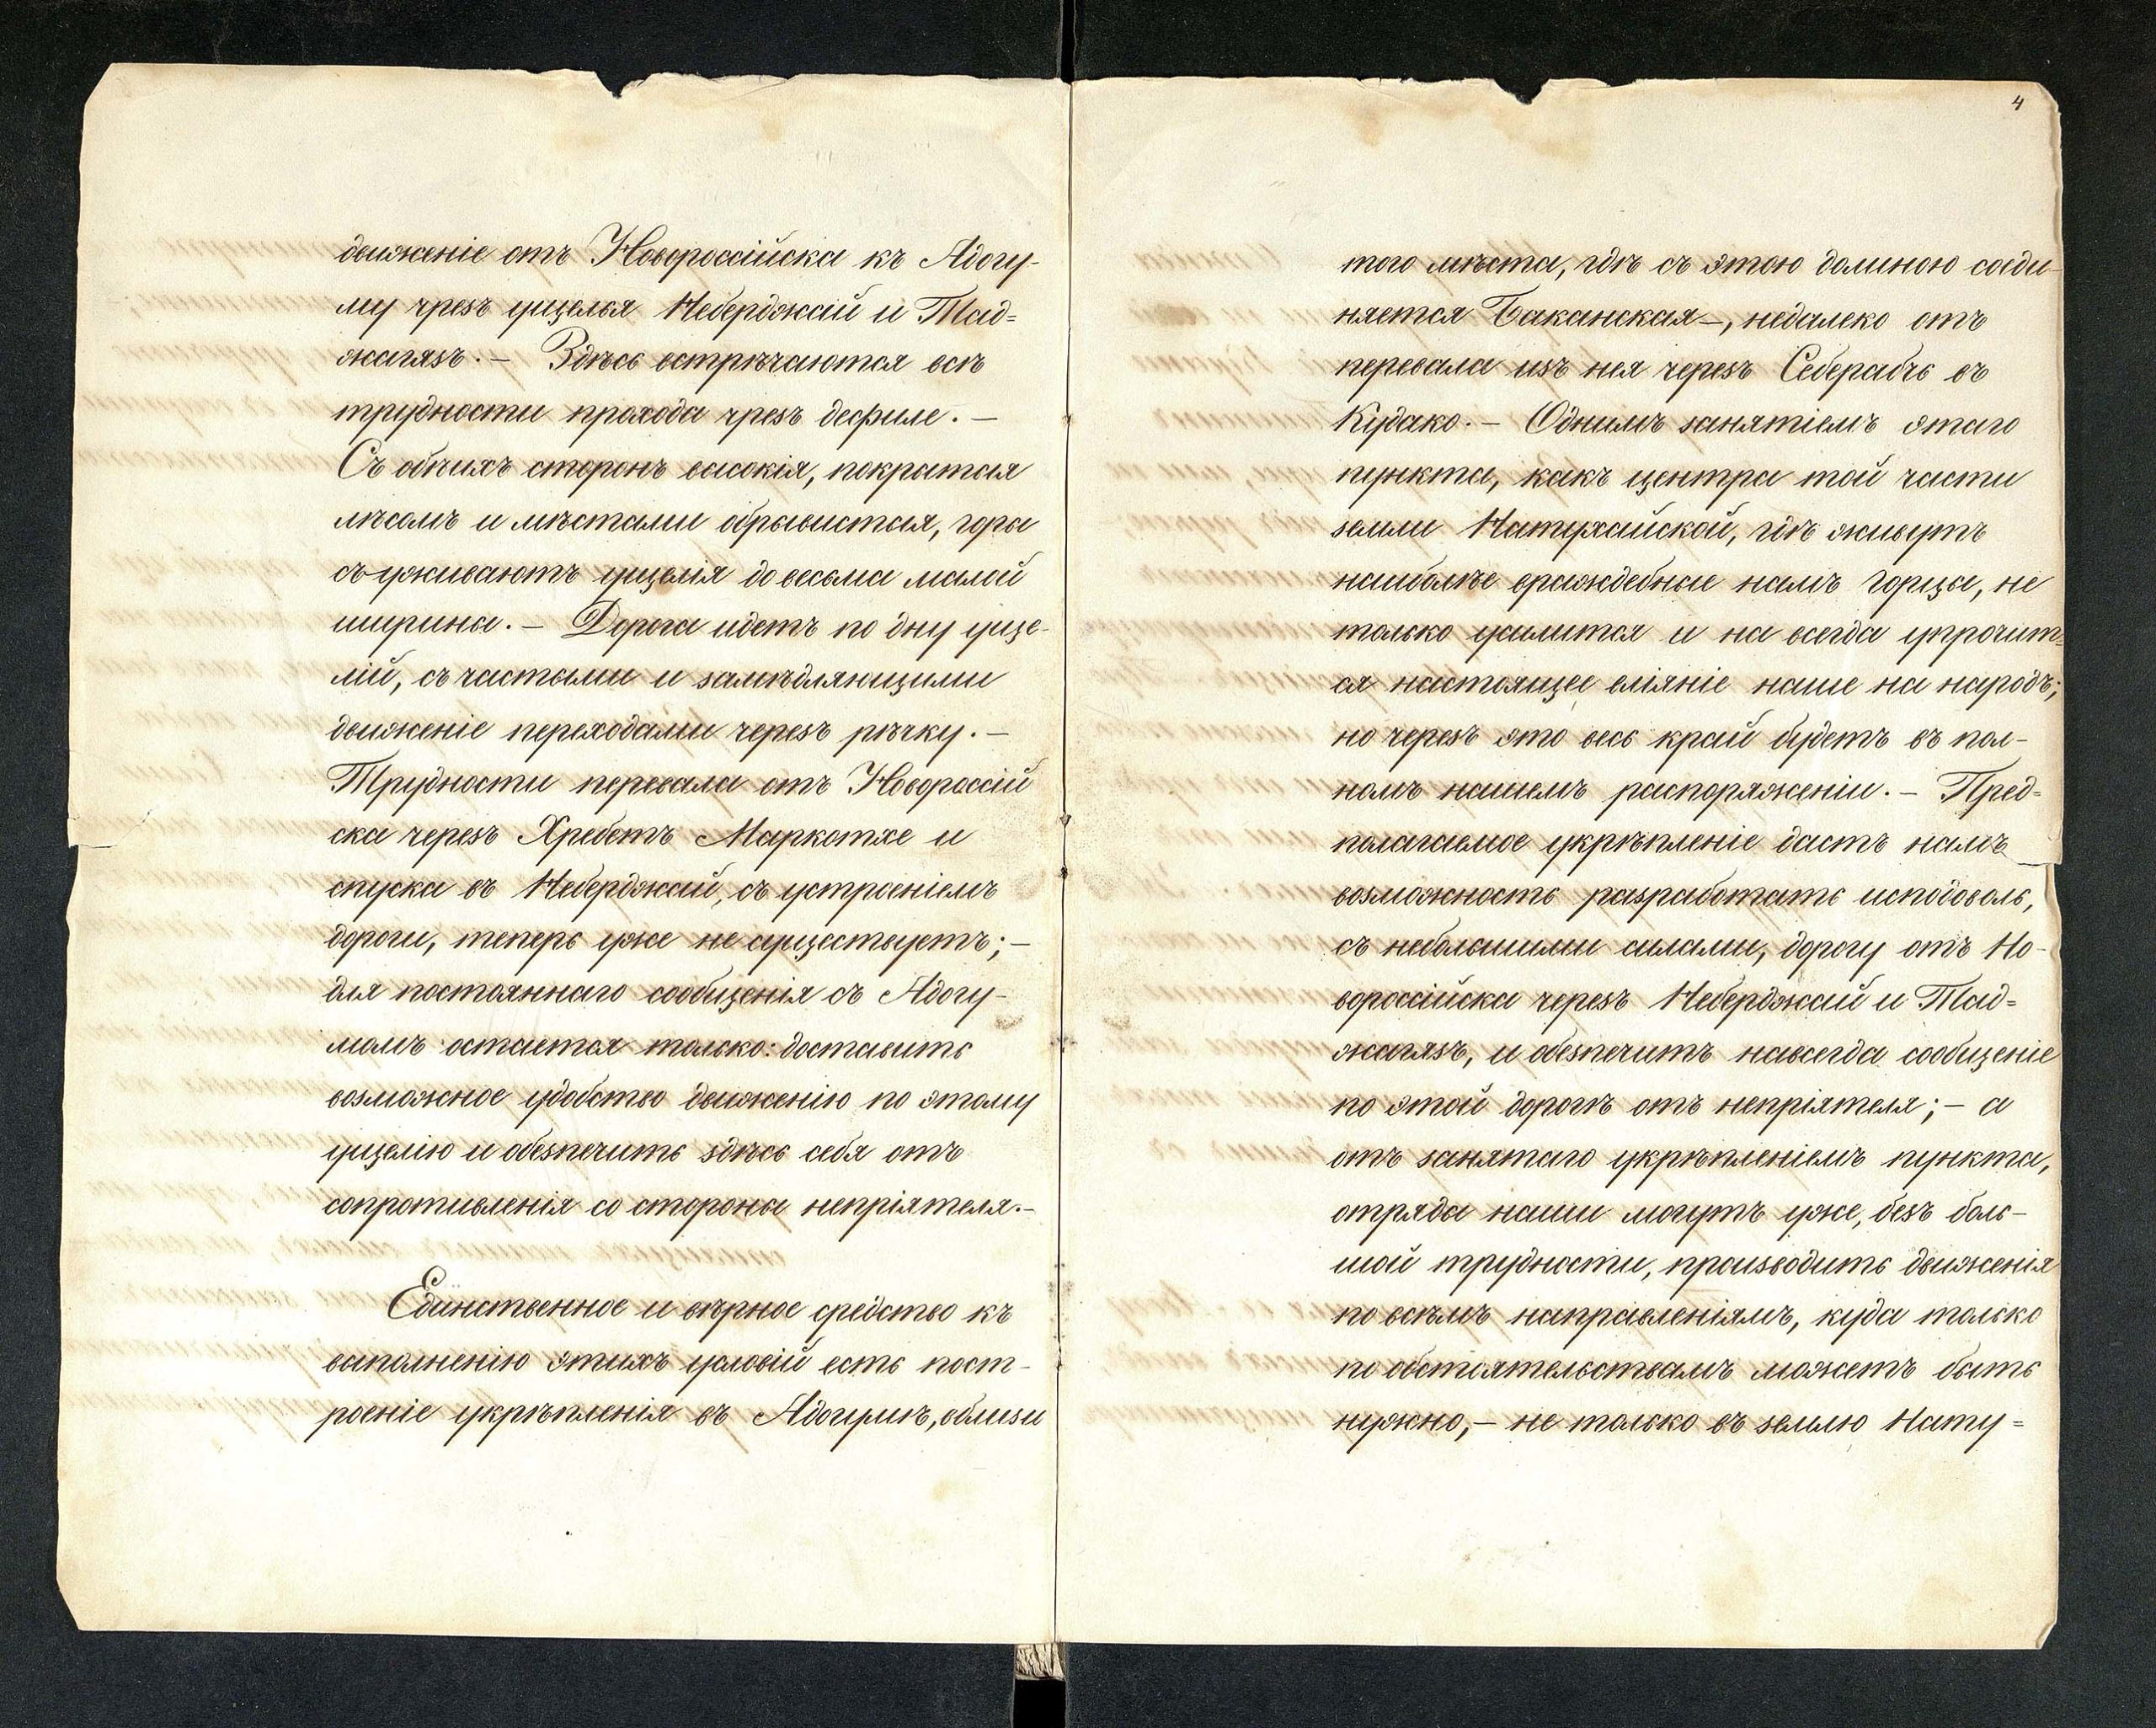 движеніе отъ Новороссійска къ Адогу-
му чрезъ ущелья Неберджай и Тад=
жагязъ. — Здѣсь встрѣчаются всѣ
трудности прохода чрезъ дефиле. —
Съ обѣихъ сторонъ высокія, покрытыя
лѣсомъ и мѣстами обрывистыя, горы
съуживаютъ ущелія до весьма малой
ширины. — Дорога идетъ по дну уще-
лій, съ частыми и замѣдляющими
движеніе переходами черезъ рѣчку. —
Трудности перевала отъ Новороссій
ска черезъ Хребетъ Маркотхе и
спуска въ Неберджай, съ устроеніемъ
дороги, теперь уже не существуетъ; —
для постояннаго сообщенія съ Адогу-
момъ остается только: доставить
возможное удобство движенію по этому
ущелію и обезпечить здѣсь себя отъ
сопротивленія со стороны непріятеля. —
Единственное и вѣрное средство къ
выполненію этихъ условій есть пост-
роеніе укрѣпленія въ Адогумѣ, вблизи
4
того мѣста, гдѣ съ этою долиною соеди-
няется Баканская —, недалеко отъ
перевала изъ нея черезъ Себерабчь въ
Кудако. — Однимъ занятіемъ этаго
пункта, какъ центра той части
земли Натухайской, гдѣ живутъ
наиболѣе враждебные намъ горцы, не
только усилится и на всегда упрочит=
ся настоящее вліяніе наше на народъ;
но черезъ это весь край будетъ въ пол-
номъ нашемъ распоряженіи. — Пред=
полагаемое укрѣпленіе дастъ намъ
возможность разработать исподоволь,
съ небольшими силами, дорогу отъ Но-
вороссійска черезъ Неберджай и Тад=
жагязъ, и обезпечитъ навсегда сообщеніе
по этой дорогѣ отъ непріятеля; — а
отъ занятаго укрѣпленіемъ пункта,
отряды наши могутъ уже, безъ боль-
шой трудности, производить движенія
по всѣмъ направленіямъ, куда только
по обстоятельствамъ можетъ быть
нужно, — не только въ землю Нату=